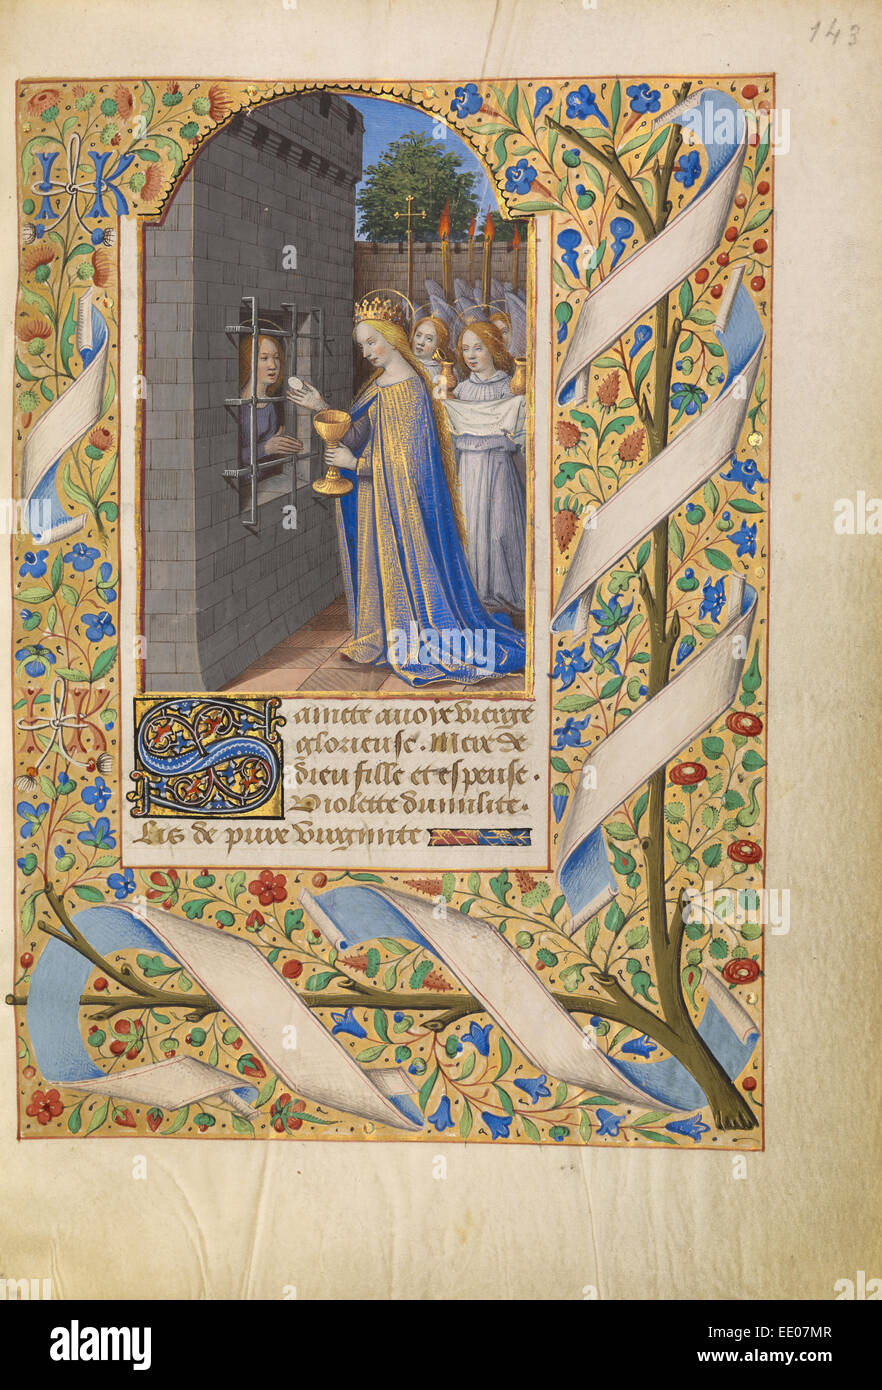 143
IK
Saincte avoye vierge
glorieuse. Mere de
dieu fille et espeuse.
Violette dumilite.
Lis de pure virginite
IK
alamy
Image ID: EE07MR
www.alamy.com